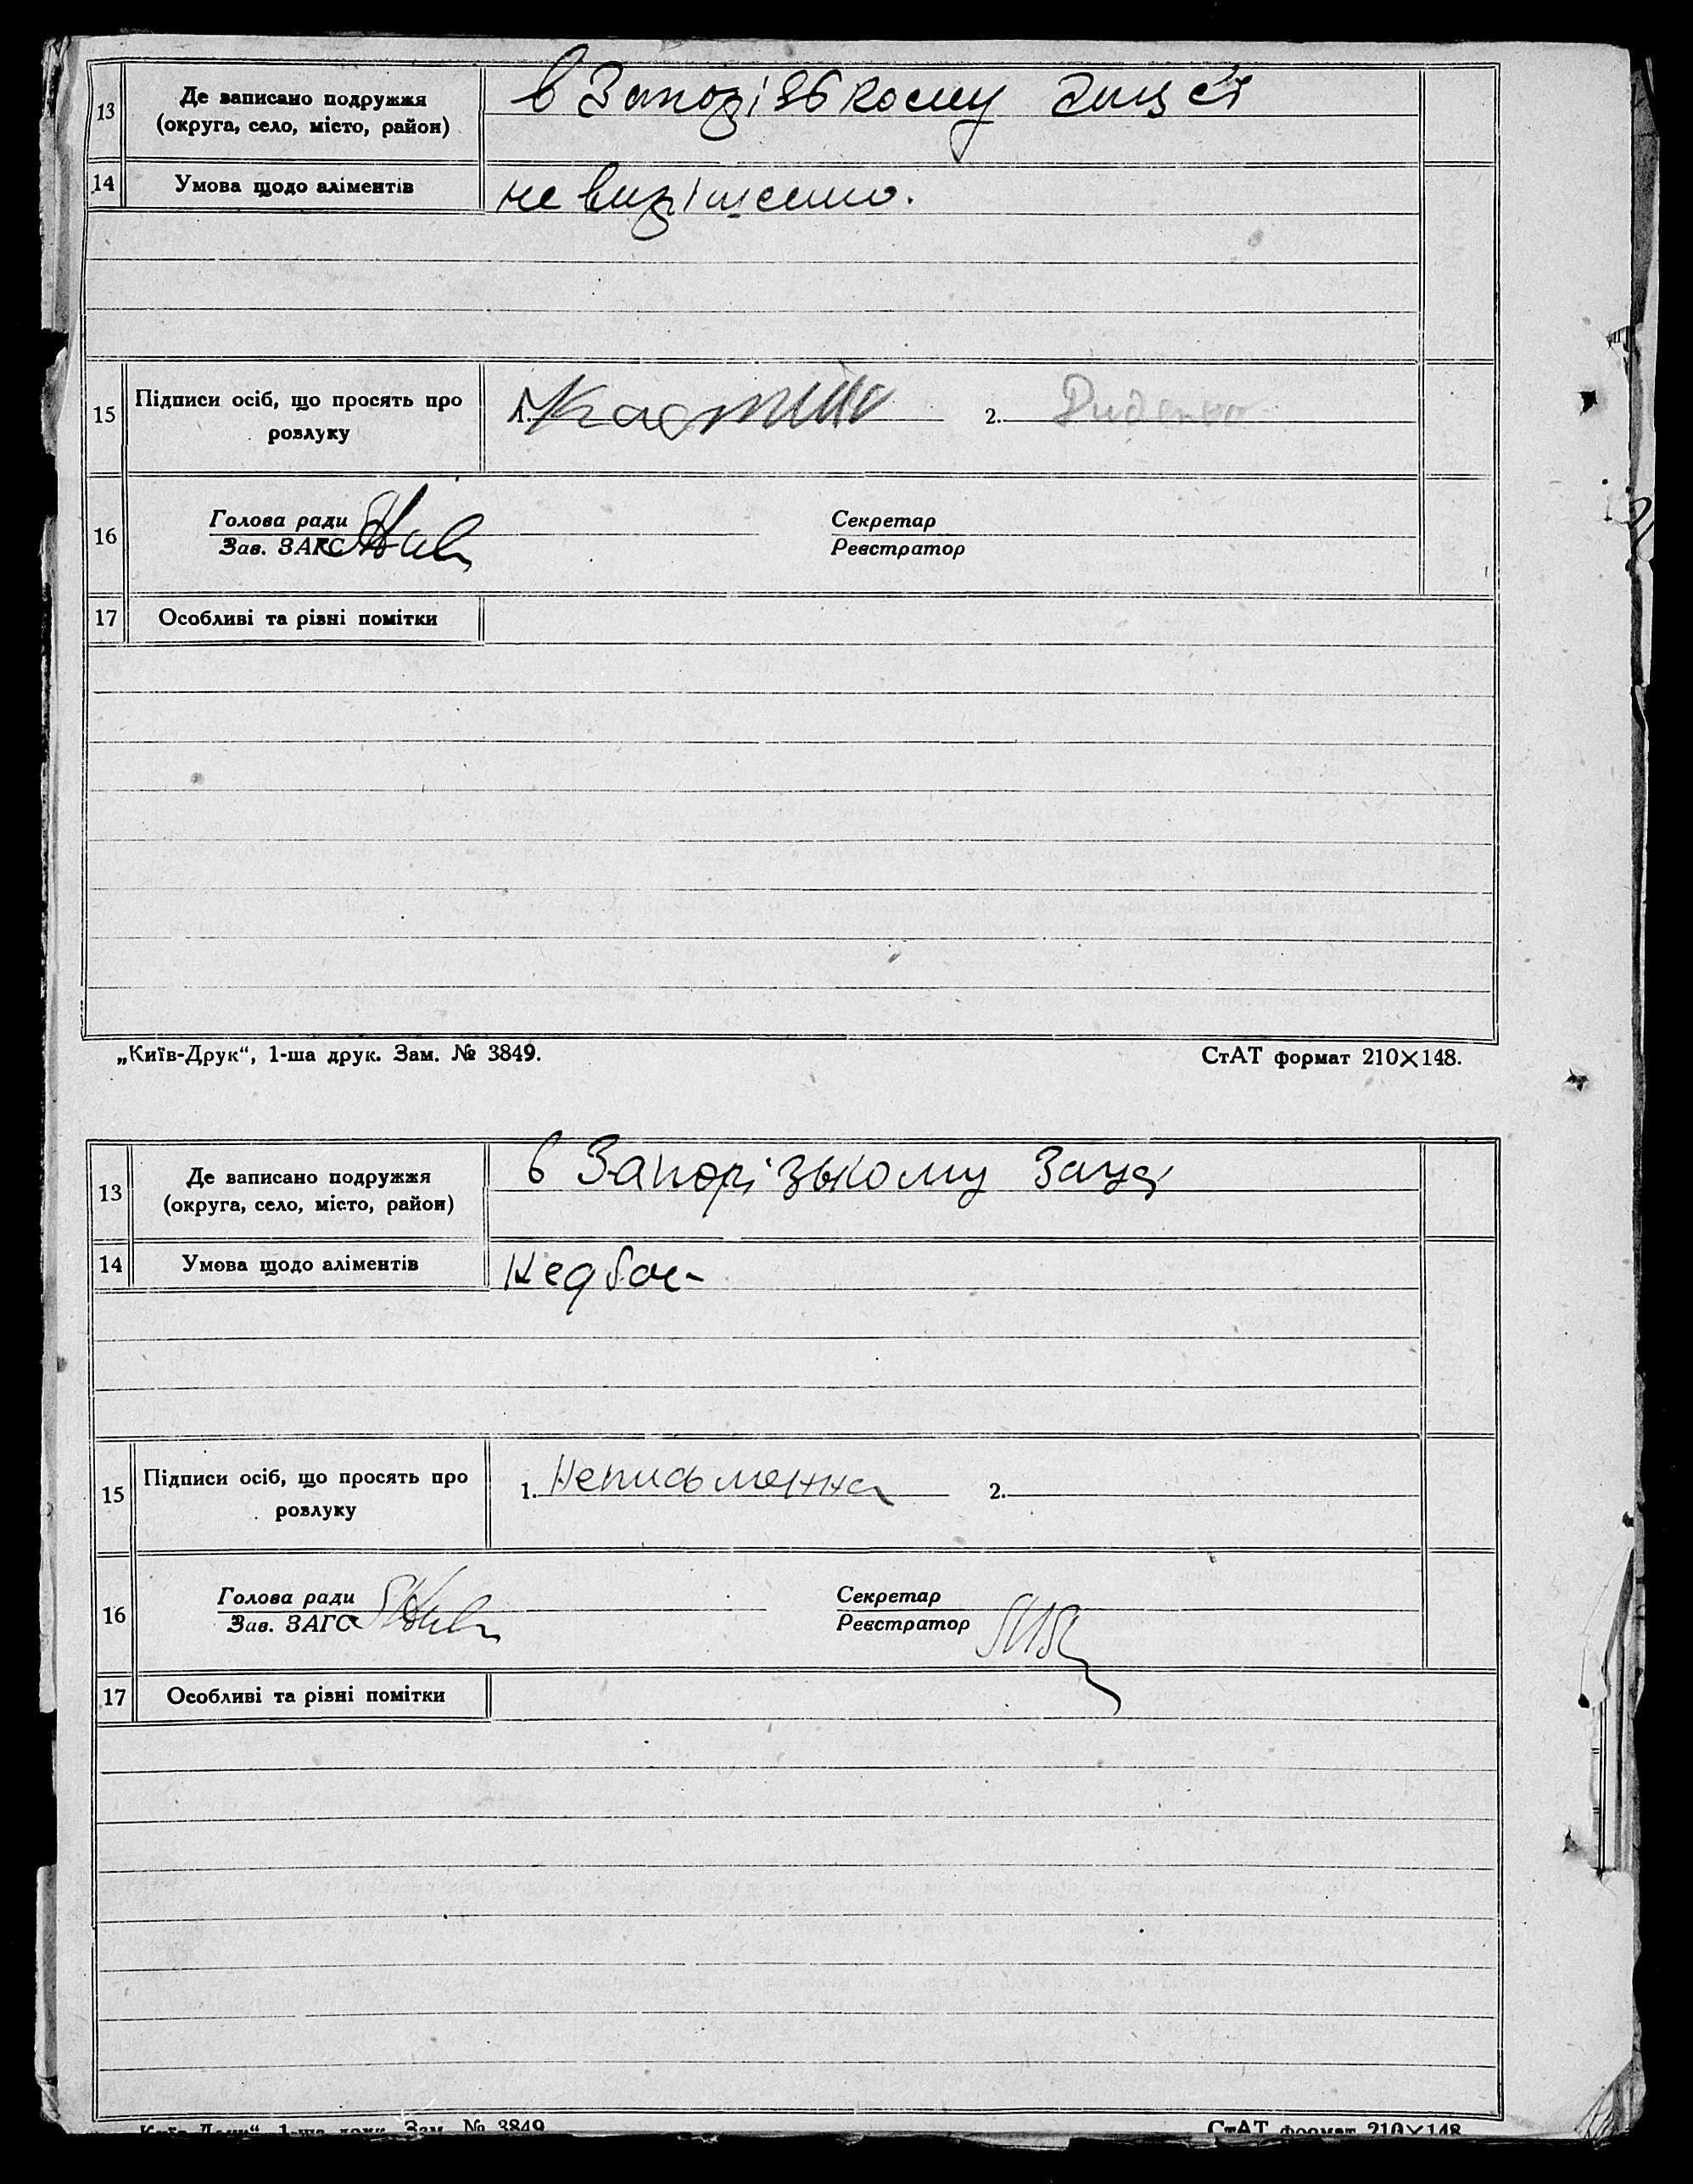 13
Де записано подружжя
(округа, село, місто, район)
в Запорізькому
14
Умова щодо аліментів
не вирішено.
15
Підписи осіб, що просять про
розлуку
1.
2. Диденко
16
Голова ради
Зав. ЗАГС
Секретар
Реєстратор
17
Особливі та різні помітки
„Київ-Друк“, 1-ша друк. Зам. № 3849.
СтАТ формат 210×148.
13
Де записано подружжя
(округа, село, місто, район)
в Запорізькому Загсі
14
Умова щодо аліментів
15
Підписи осіб, що просять про
розлуку
1. Неписьменна
2.
16
Голова ради
Зав. ЗАГС
Секретар
Реєстратор
17
Особливі та різні помітки
„Київ-Друк“, 1-ша друк. Зам. № 3849
СтАТ формат 210×148